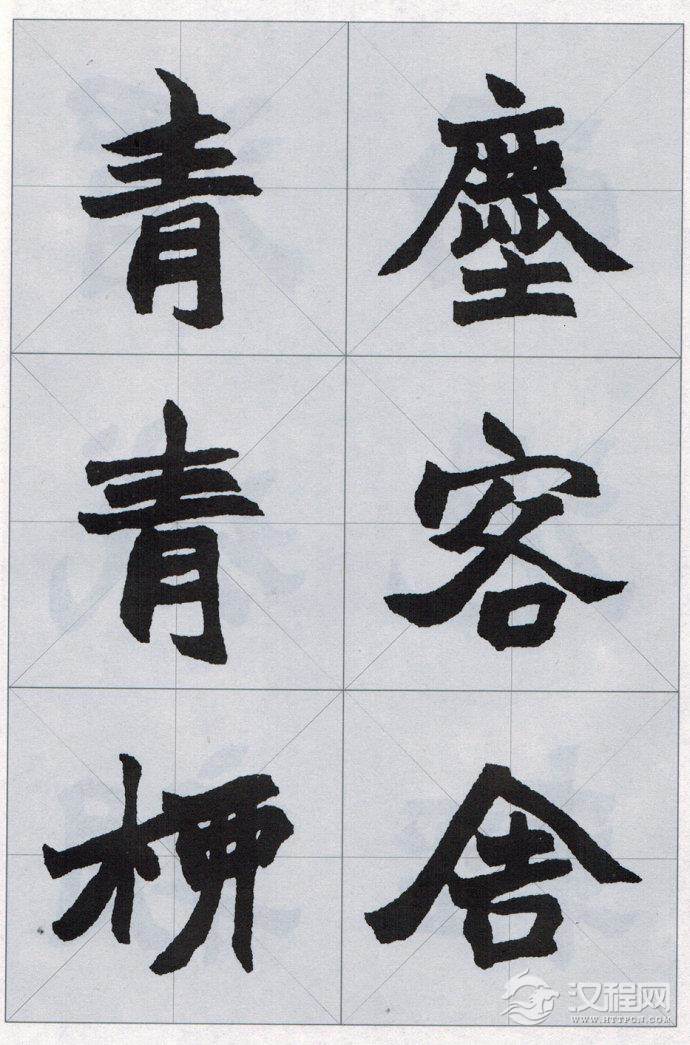 塵客舍
青青柳
汉程网
WWW.HTTPCN.COM